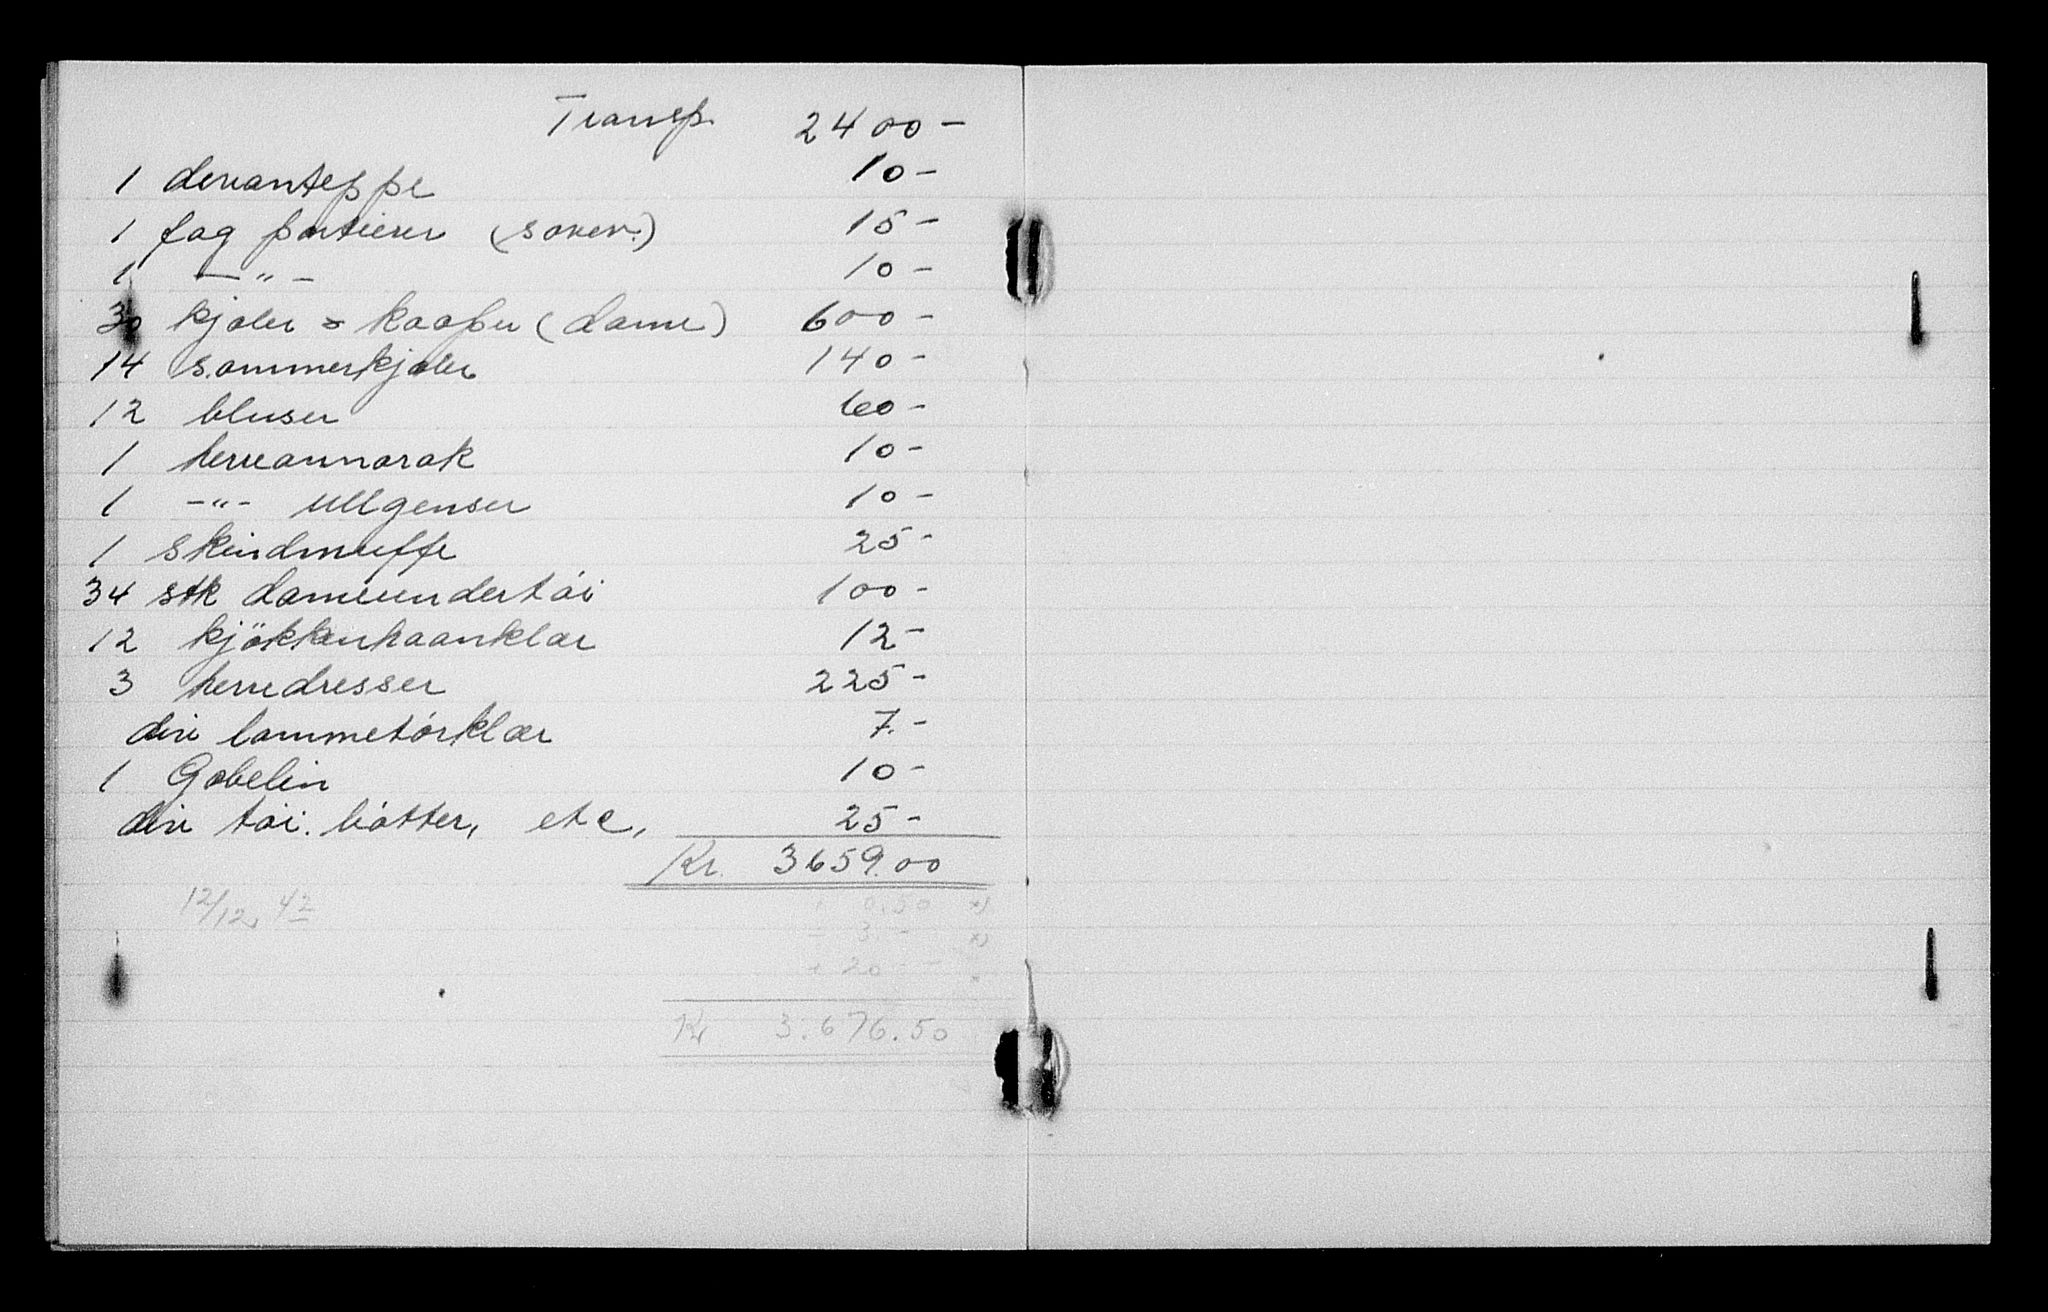 Transp. 2400-
1 divanteppe 10-
1 fag portierer (sovev.) 15-
1 -"- 10-
30 kjoler & kaaper (dame) 600-
14 sommerkjoler 140-
12 bluser 60-
1 herreannorak 10-
1 -"- ullgenser 10-
1 skindmuffe 25-
34 stk dameundertói 100-
12 kjökkenhaanklær 12-
3 herredresser 225-
div lommetórklær 7.-
1 Gobelin 10-
div tói. bótter, etc, 25-
Kr. 3659.00
12/12, 42
0,50 x)
3.- x)
20 - -
Kr 3.676.50